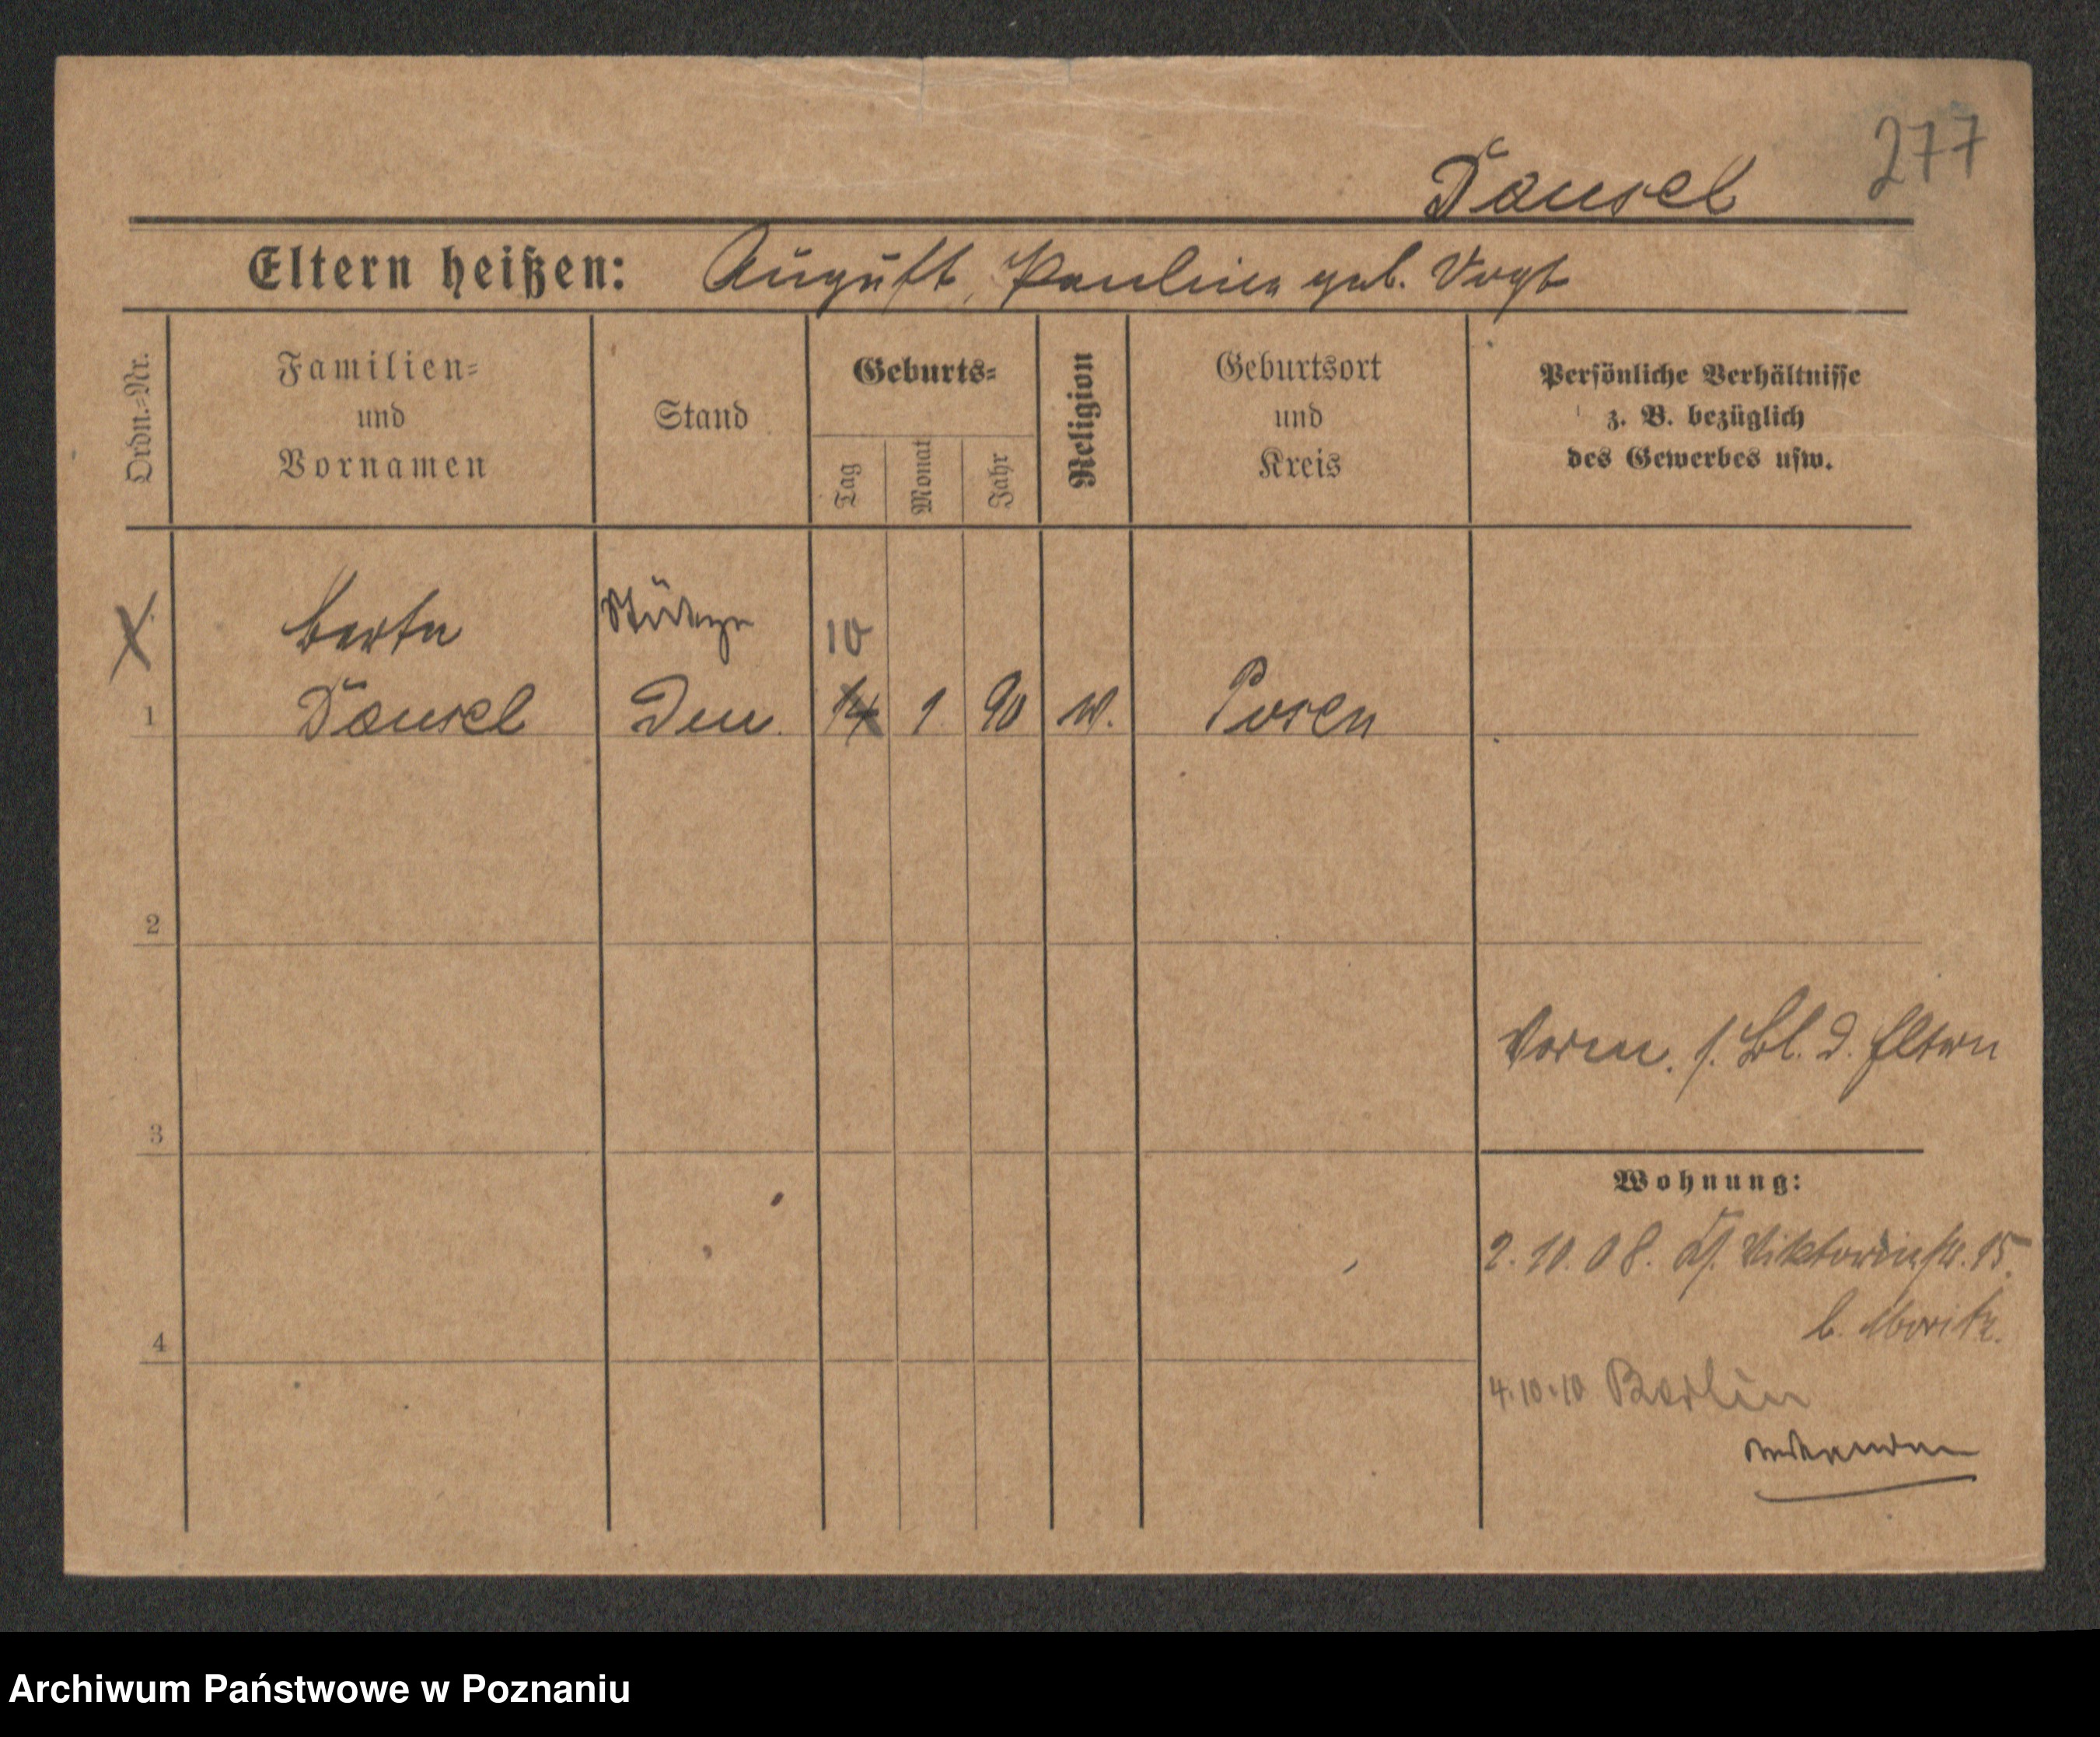 277
Dansel
Eltern heißen: August, Pauline geb. Vogt
Ordn.=Nr.
Familien=
und
Vornamen
Stand
Geburts=
Tag
Monat
Jahr
Religion
Geburtsort
und
Kreis
Persönliche Verhältnisse
z. B. bezüglich
des Gewerbes usw.
X
Berta
Stütze
10
1 Dansel 14 1 90 Posen
2
Vorm. s. Bl. d. Eltern
3
Wohnung:
2.10.08. Viktoriastr. 15.
b. Moritz.
4
4.10.10 Berlin
Archiwum Państwowe w Poznaniu